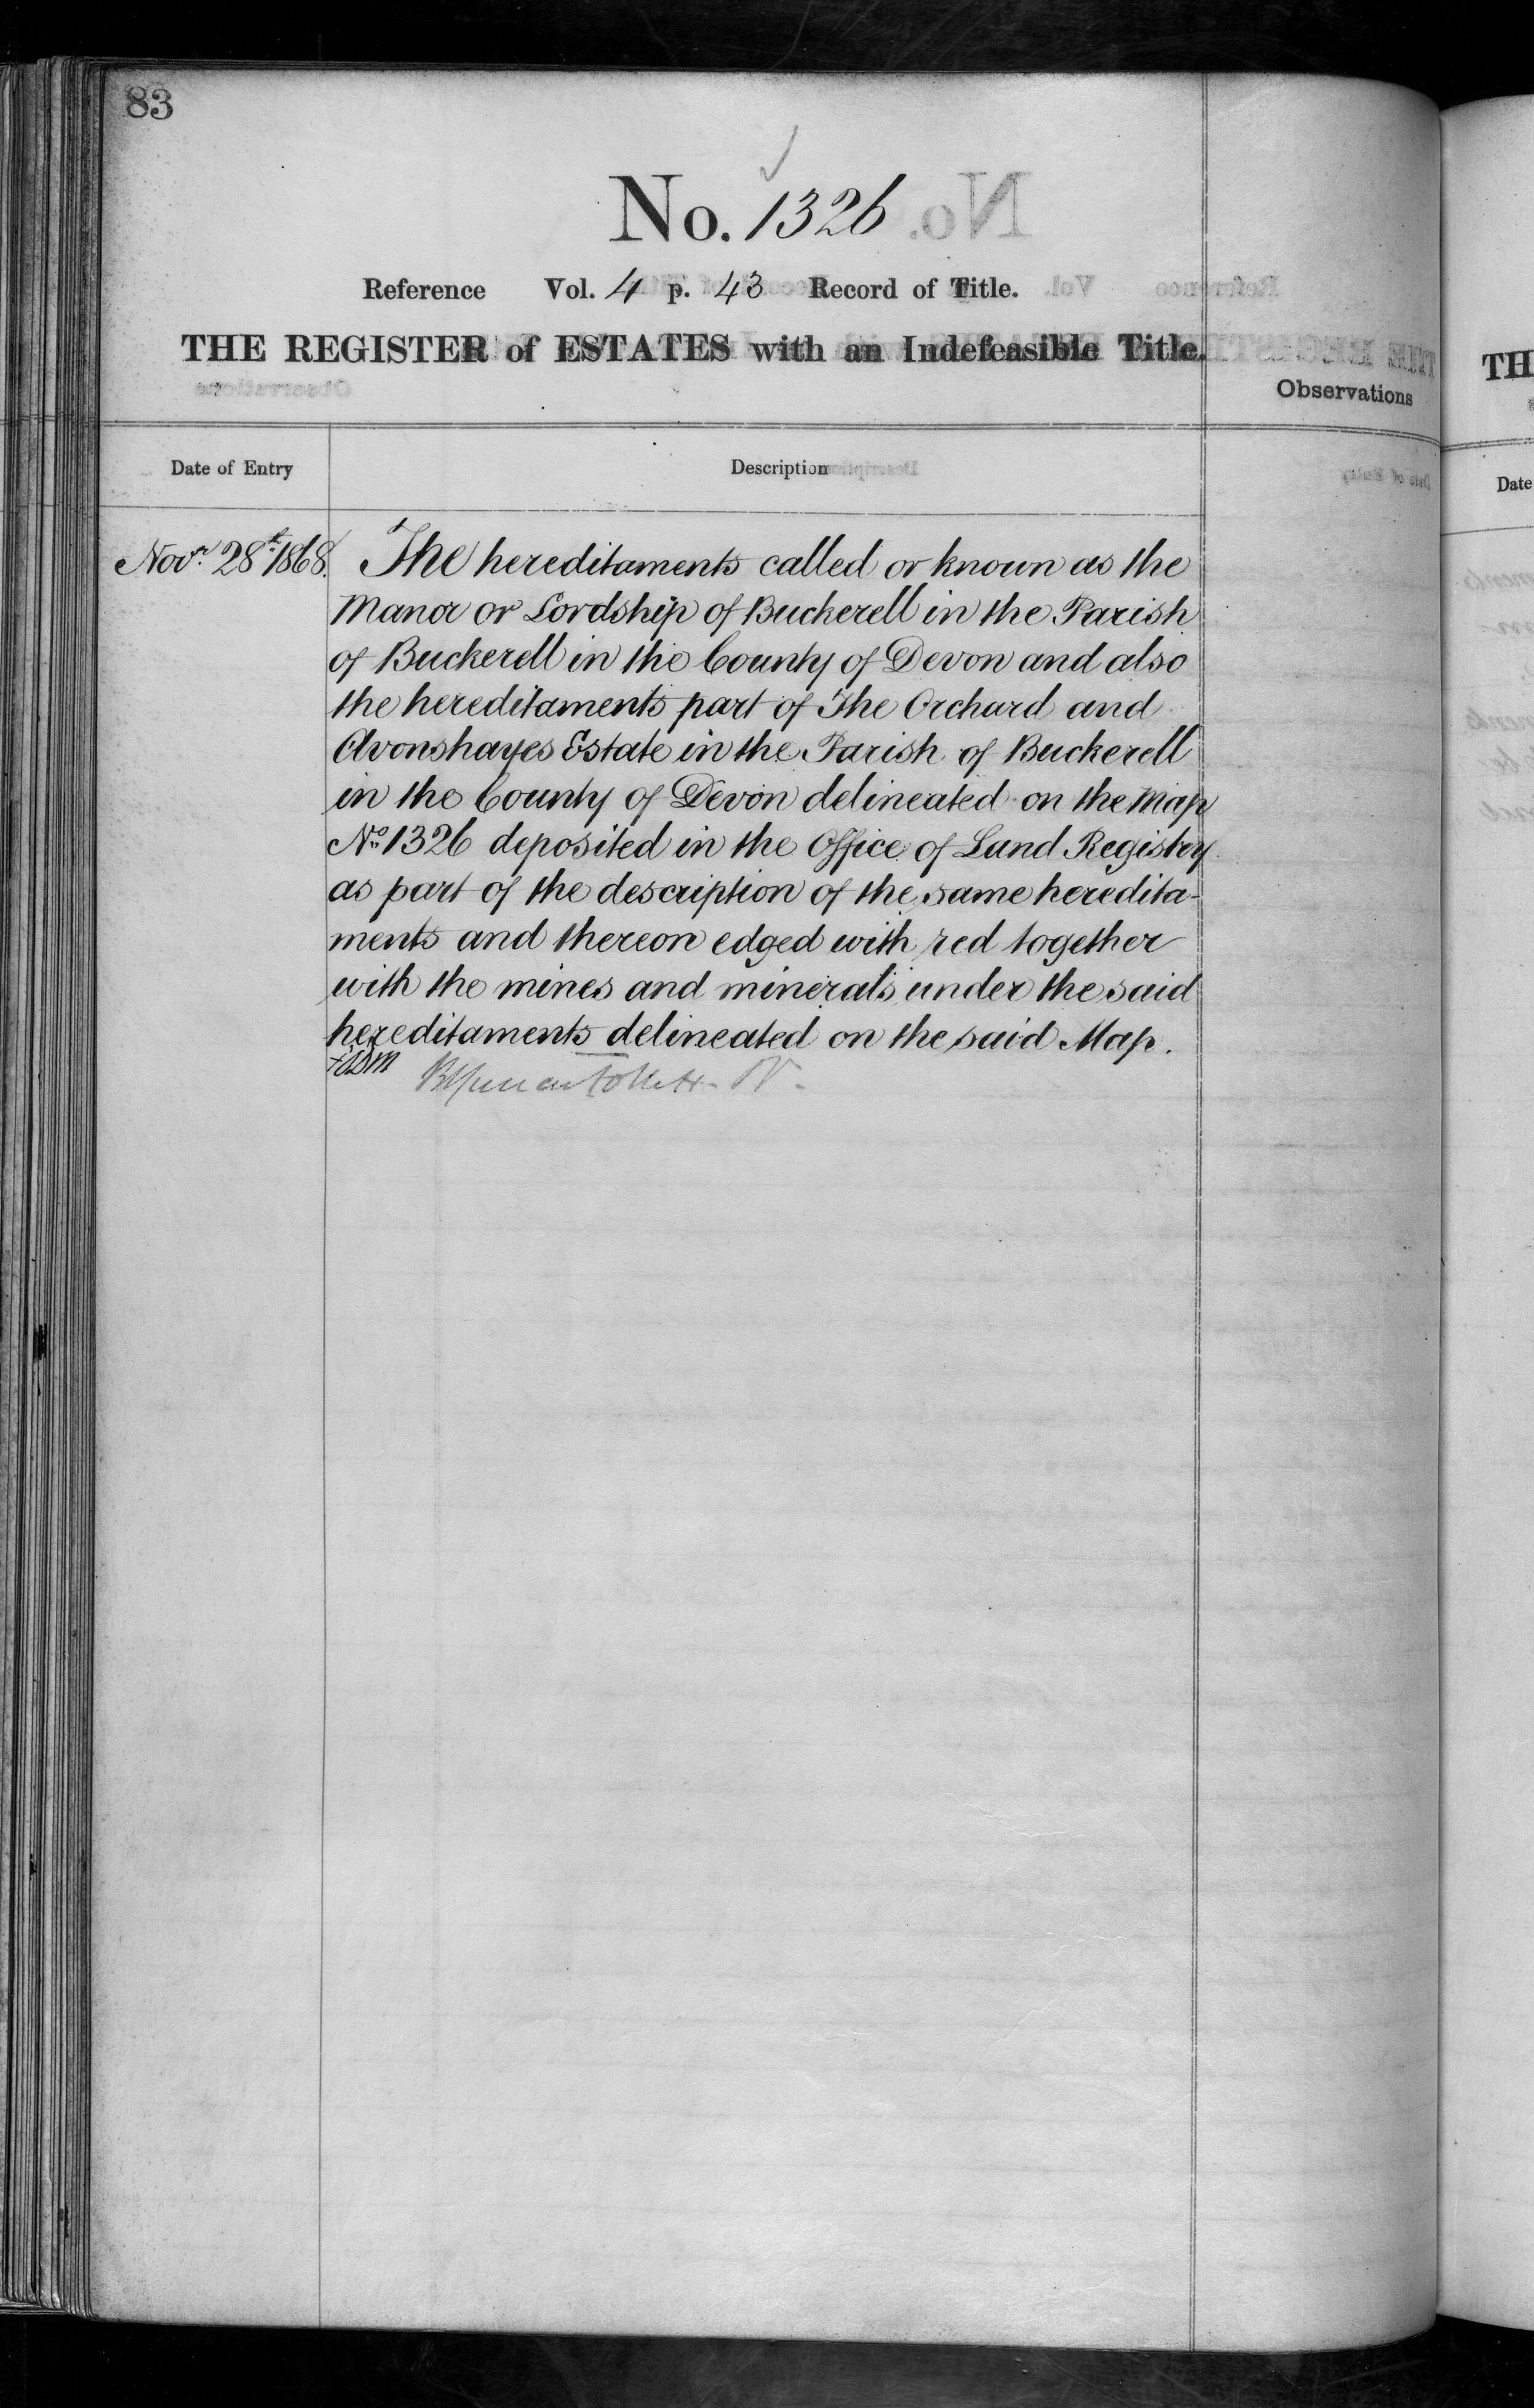 83
No. 1326
Reference Vol. 4 p. 43 Record of Title.
THE REGISTER of ESTATES with an Indefeasible Title.
Observations
Date of Entry
Description
Novr. 28th 1868.
The hereditaments called or known as the
Manor or Lordship of Buckerell in the Parish
of Buckerell in the County of Devon and also
the hereditaments part of The Orchard and
Avonshayes Estate in the Parish of Buckerell
in the County of Devon delineated on the Map
No. 1326 deposited in the Office of Land Registry
as part of the description of the same heredita-
ments and thereon edged with red together
with the mines and minerals under the said
hereditaments delineated on the said Map.
TH
Date